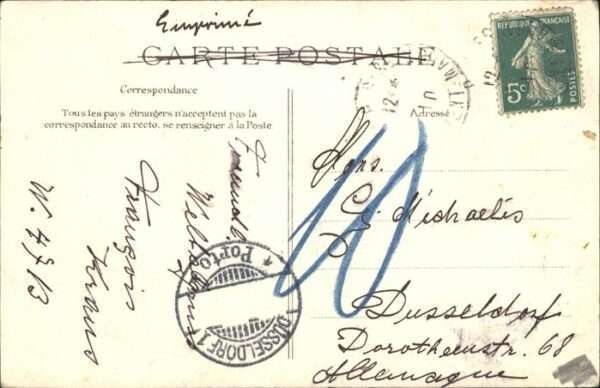 Emprimé
CARTE POSTALE
Correspondance
Tous les pays étrangers n'acceptent pas la
correspondance au recto, se renseigner à la Poste
Adresse
REPUBLIQUE FRANÇAISE
5c
POSTES
François
Kraus
W. 4/3 13
Porto
DÜSSELDORF 1
10
S. Michaelis
Dusseldorf
Dorotheenstr. 68
Allemagne